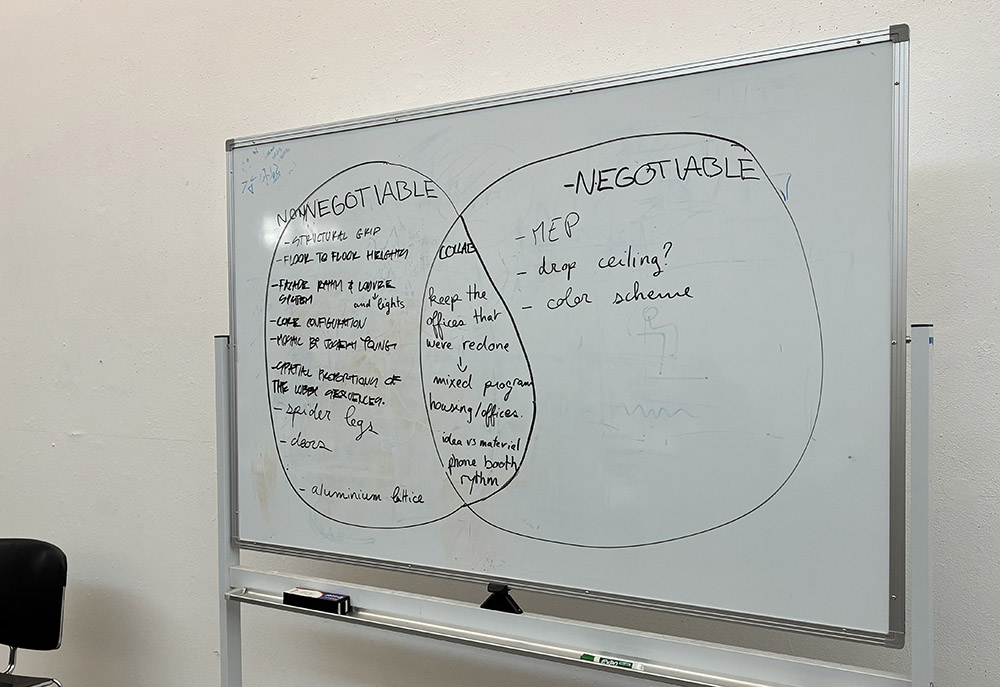 NONNEGOTIABLE
- STRUCTURAL GRID
- FLOOR TO FLOOR HEIGHTS
- FACADE & LOUVRE
SYSTEM and lights
- CORE CONFIGURATION
- BY JOSEPH YOUNG
- SPATIAL PROPORTIONS OF
THE LOBBY SEQUENCES.
- spider legs
- doors
- aluminium lattice
COLLAB
keep the
offices that
were redone
↓
mixed program
housing/offices.
idea vs material
phone booth
rythm
-NEGOTIABLE
- MEP
- drop ceiling?
- color scheme